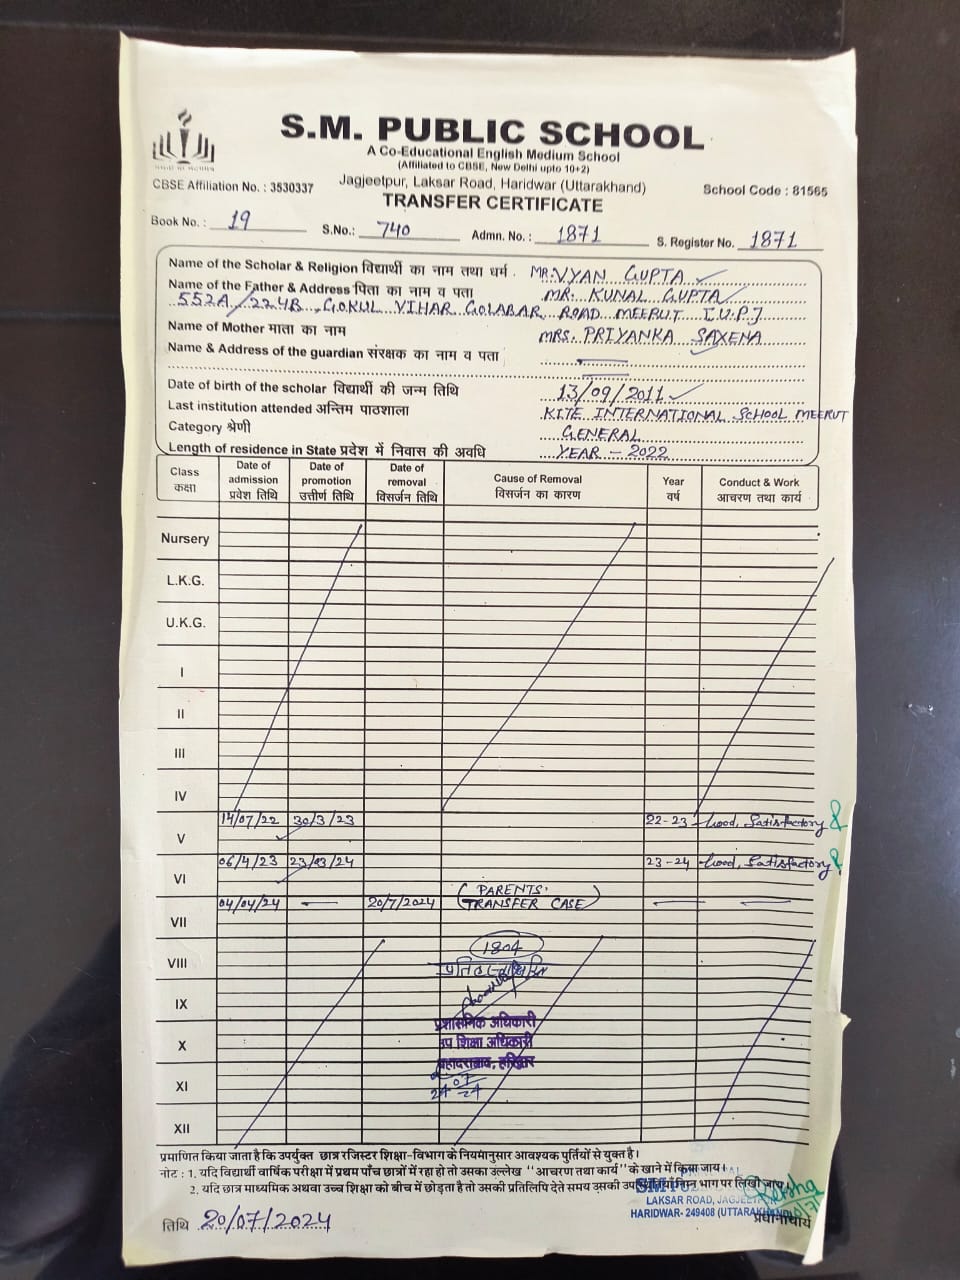 S.M. PUBLIC SCHOOL
A Co-Educational English Medium School
(Affiliated to CBSE, New Delhi upto 10+2)
CBSE Affiliation No. : 3530337 Jagjeetpur, Laksar Road, Haridwar (Uttarakhand) School Code : 81565
TRANSFER CERTIFICATE
Book No. : 19 S.No.: 740 Admn. No. : 1871 S. Register No. 1871
Name of the Scholar & Religion विद्यार्थी का नाम तथा धर्म . MR. VYAN GUPTA
Name of the Father & Address पिता का नाम व पता MR. KUNAL GUPTA
552A/224B, GOKUL VIHAR GOLABAR ROAD MEERUT [U.P]
Name of Mother माता का नाम MRS. PRIYANKA SAXENA
Name & Address of the guardian संरक्षक का नाम व पता
Date of birth of the scholar विद्यार्थी की जन्म तिथि 13/09/2011
Last institution attended अन्तिम पाठशाला KITE INTERNATIONAL SCHOOL MEERUT
Category श्रेणी GENERAL
Length of residence in State प्रदेश में निवास की अवधि YEAR - 2022
Class कक्षा Date of admission प्रवेश तिथि Date of promotion उत्तीर्ण तिथि Date of removal विसर्जन तिथि Cause of Removal विसर्जन का कारण Year वर्ष Conduct & Work आचरण तथा कार्य
Nursery
L.K.G.
U.K.G.
I
II
III
IV
V 14/07/22 30/3/23 22-23 Good, Satisfactory
VI 06/4/23 23/03/24 23-24 Good, Satisfactory
VII 04/04/24 — 20/7/2024 (PARENTS' TRANSFER CASE) — —
VIII 1804
IX
प्रशासनिक अधिकारी
X उप शिक्षा अधिकारी
बहादराबाद, हरिद्वार
XI 24/07/24
XII
प्रमाणित किया जाता है कि उपर्युक्त छात्र रजिस्टर शिक्षा-विभाग के नियमानुसार आवश्यक पुर्तियों से युक्त है।
नोट : 1. यदि विद्यार्थी वार्षिक परीक्षा में प्रथम पाँच छात्रों में रहा हो तो उसका उल्लेख "आचरण तथा कार्य" के खाने में किया जाय।
2. यदि छात्र माध्यमिक अथवा उच्च शिक्षा को बीच में छोड़ता है तो उसकी प्रतिलिपि देते समय उसकी निम्न भाग पर लिखी जाए।
LAKSAR ROAD, JAGJEETPUR
HARIDWAR- 249408 (UTTARAKHAND)
तिथि 20/07/2024 प्रधानाचार्य